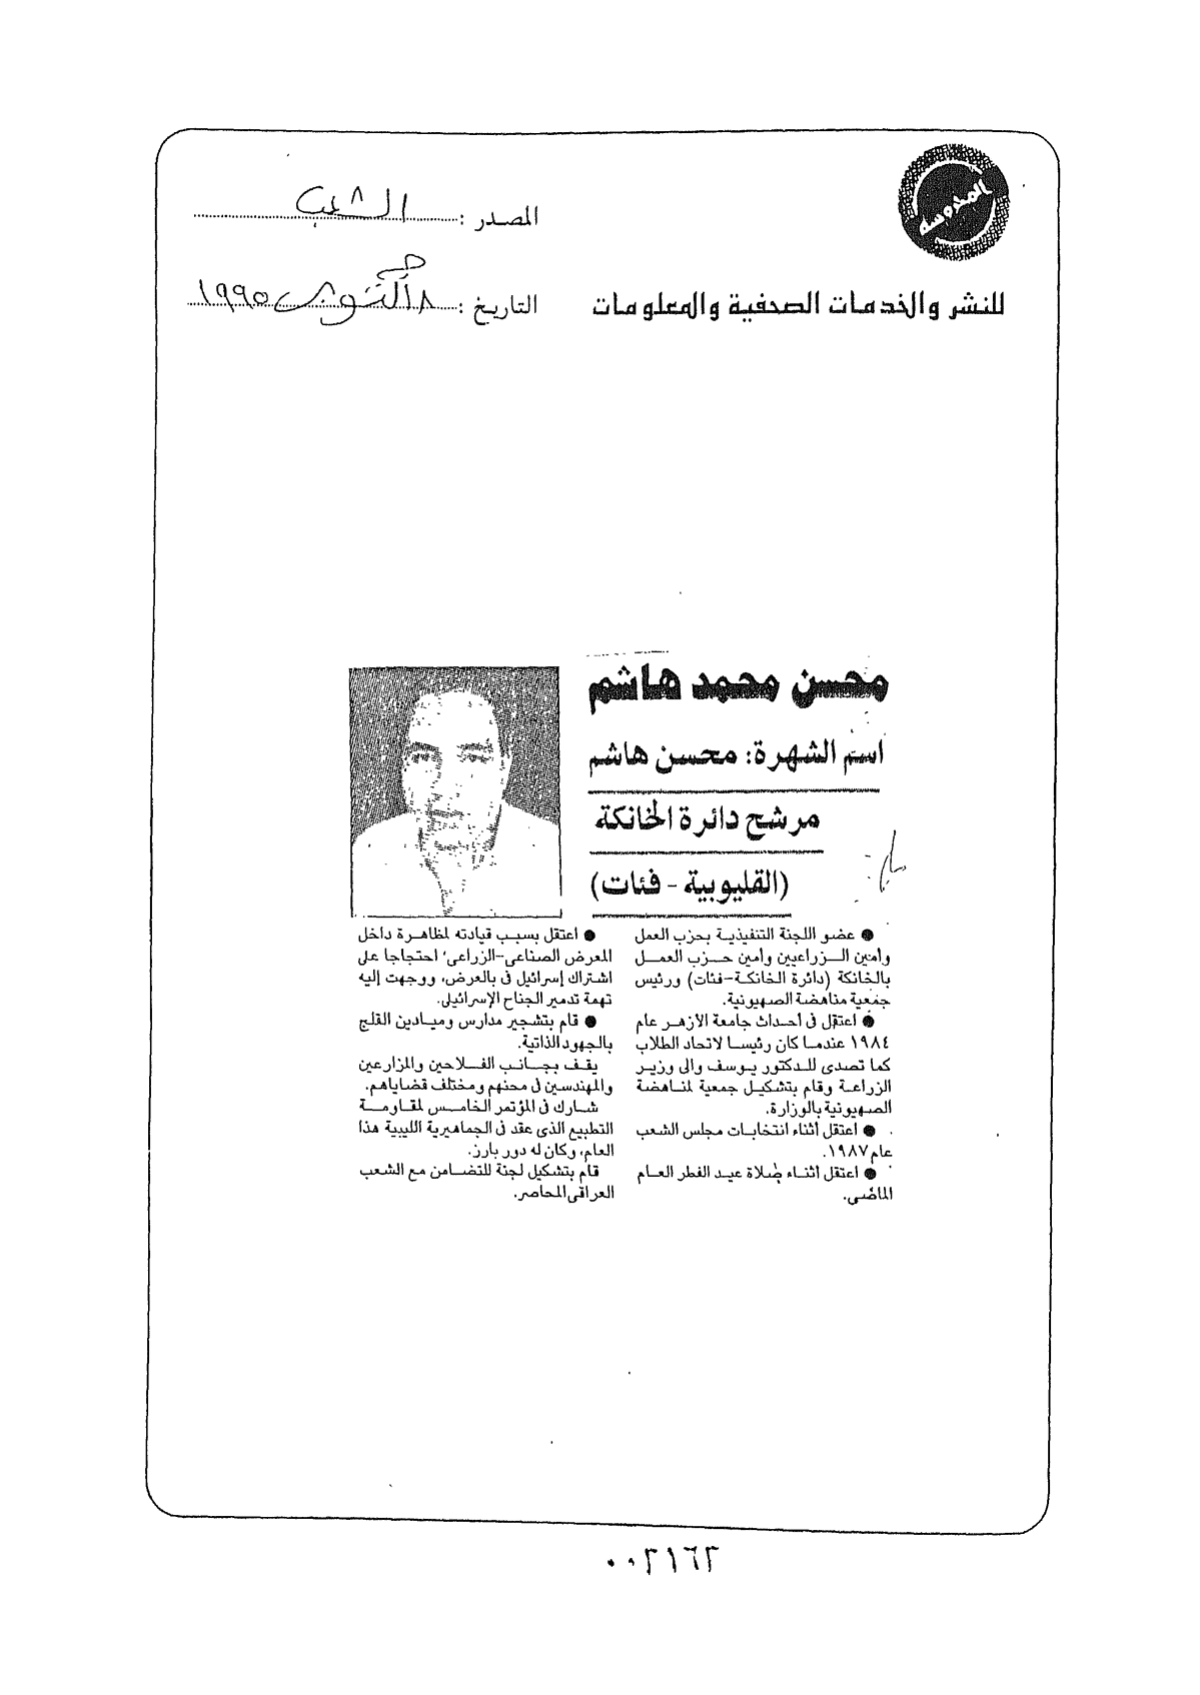 المحروسة
للنشر والخدمات الصحفية والمعلومات
المصدر : الشعب
التاريخ : ١٨ أكتوبر ١٩٩٥
محسن محمد هاشم
اسم الشهرة: محسن هاشم
مرشح دائرة الخانكة
(القليوبية - فئات)
● عضو اللجنة التنفيذية بحزب العمل
وأمين الزراعيين وأمين حزب العمل
بالخانكة (دائرة الخانكة-فئات) ورئيس
جمعية مناهضة الصهيونية.
● اعتقل فى أحداث جامعة الأزهر عام
١٩٨٤ عندما كان رئيسا لاتحاد الطلاب
كما تصدى للدكتور يوسف والى وزير
الزراعة وقام بتشكيل جمعية لمناهضة
الصهيونية بالوزارة.
● اعتقل أثناء انتخابات مجلس الشعب
عام ١٩٨٧.
● اعتقل أثناء صلاة عيد الفطر العام
الماضى.
● اعتقل بسبب قيادته لمظاهرة داخل
المعرض الصناعى-الزراعى، احتجاجا على
اشتراك إسرائيل فى بالعرض، ووجهت إليه
تهمة تدمير الجناح الإسرائيلى.
● قام بتشجير مدارس وميادين القلج
بالجهود الذاتية.
يقف بجانب الفلاحين والمزارعين
والمهندسين فى محنهم ومختلف قضاياهم.
شارك فى المؤتمر الخامس لمقاومة
التطبيع الذى عقد فى الجماهيرية الليبية هذا
العام، وكان له دور بارز.
قام بتشكيل لجنة للتضامن مع الشعب
العراقى المحاصر.
٠٠٢١٦٢